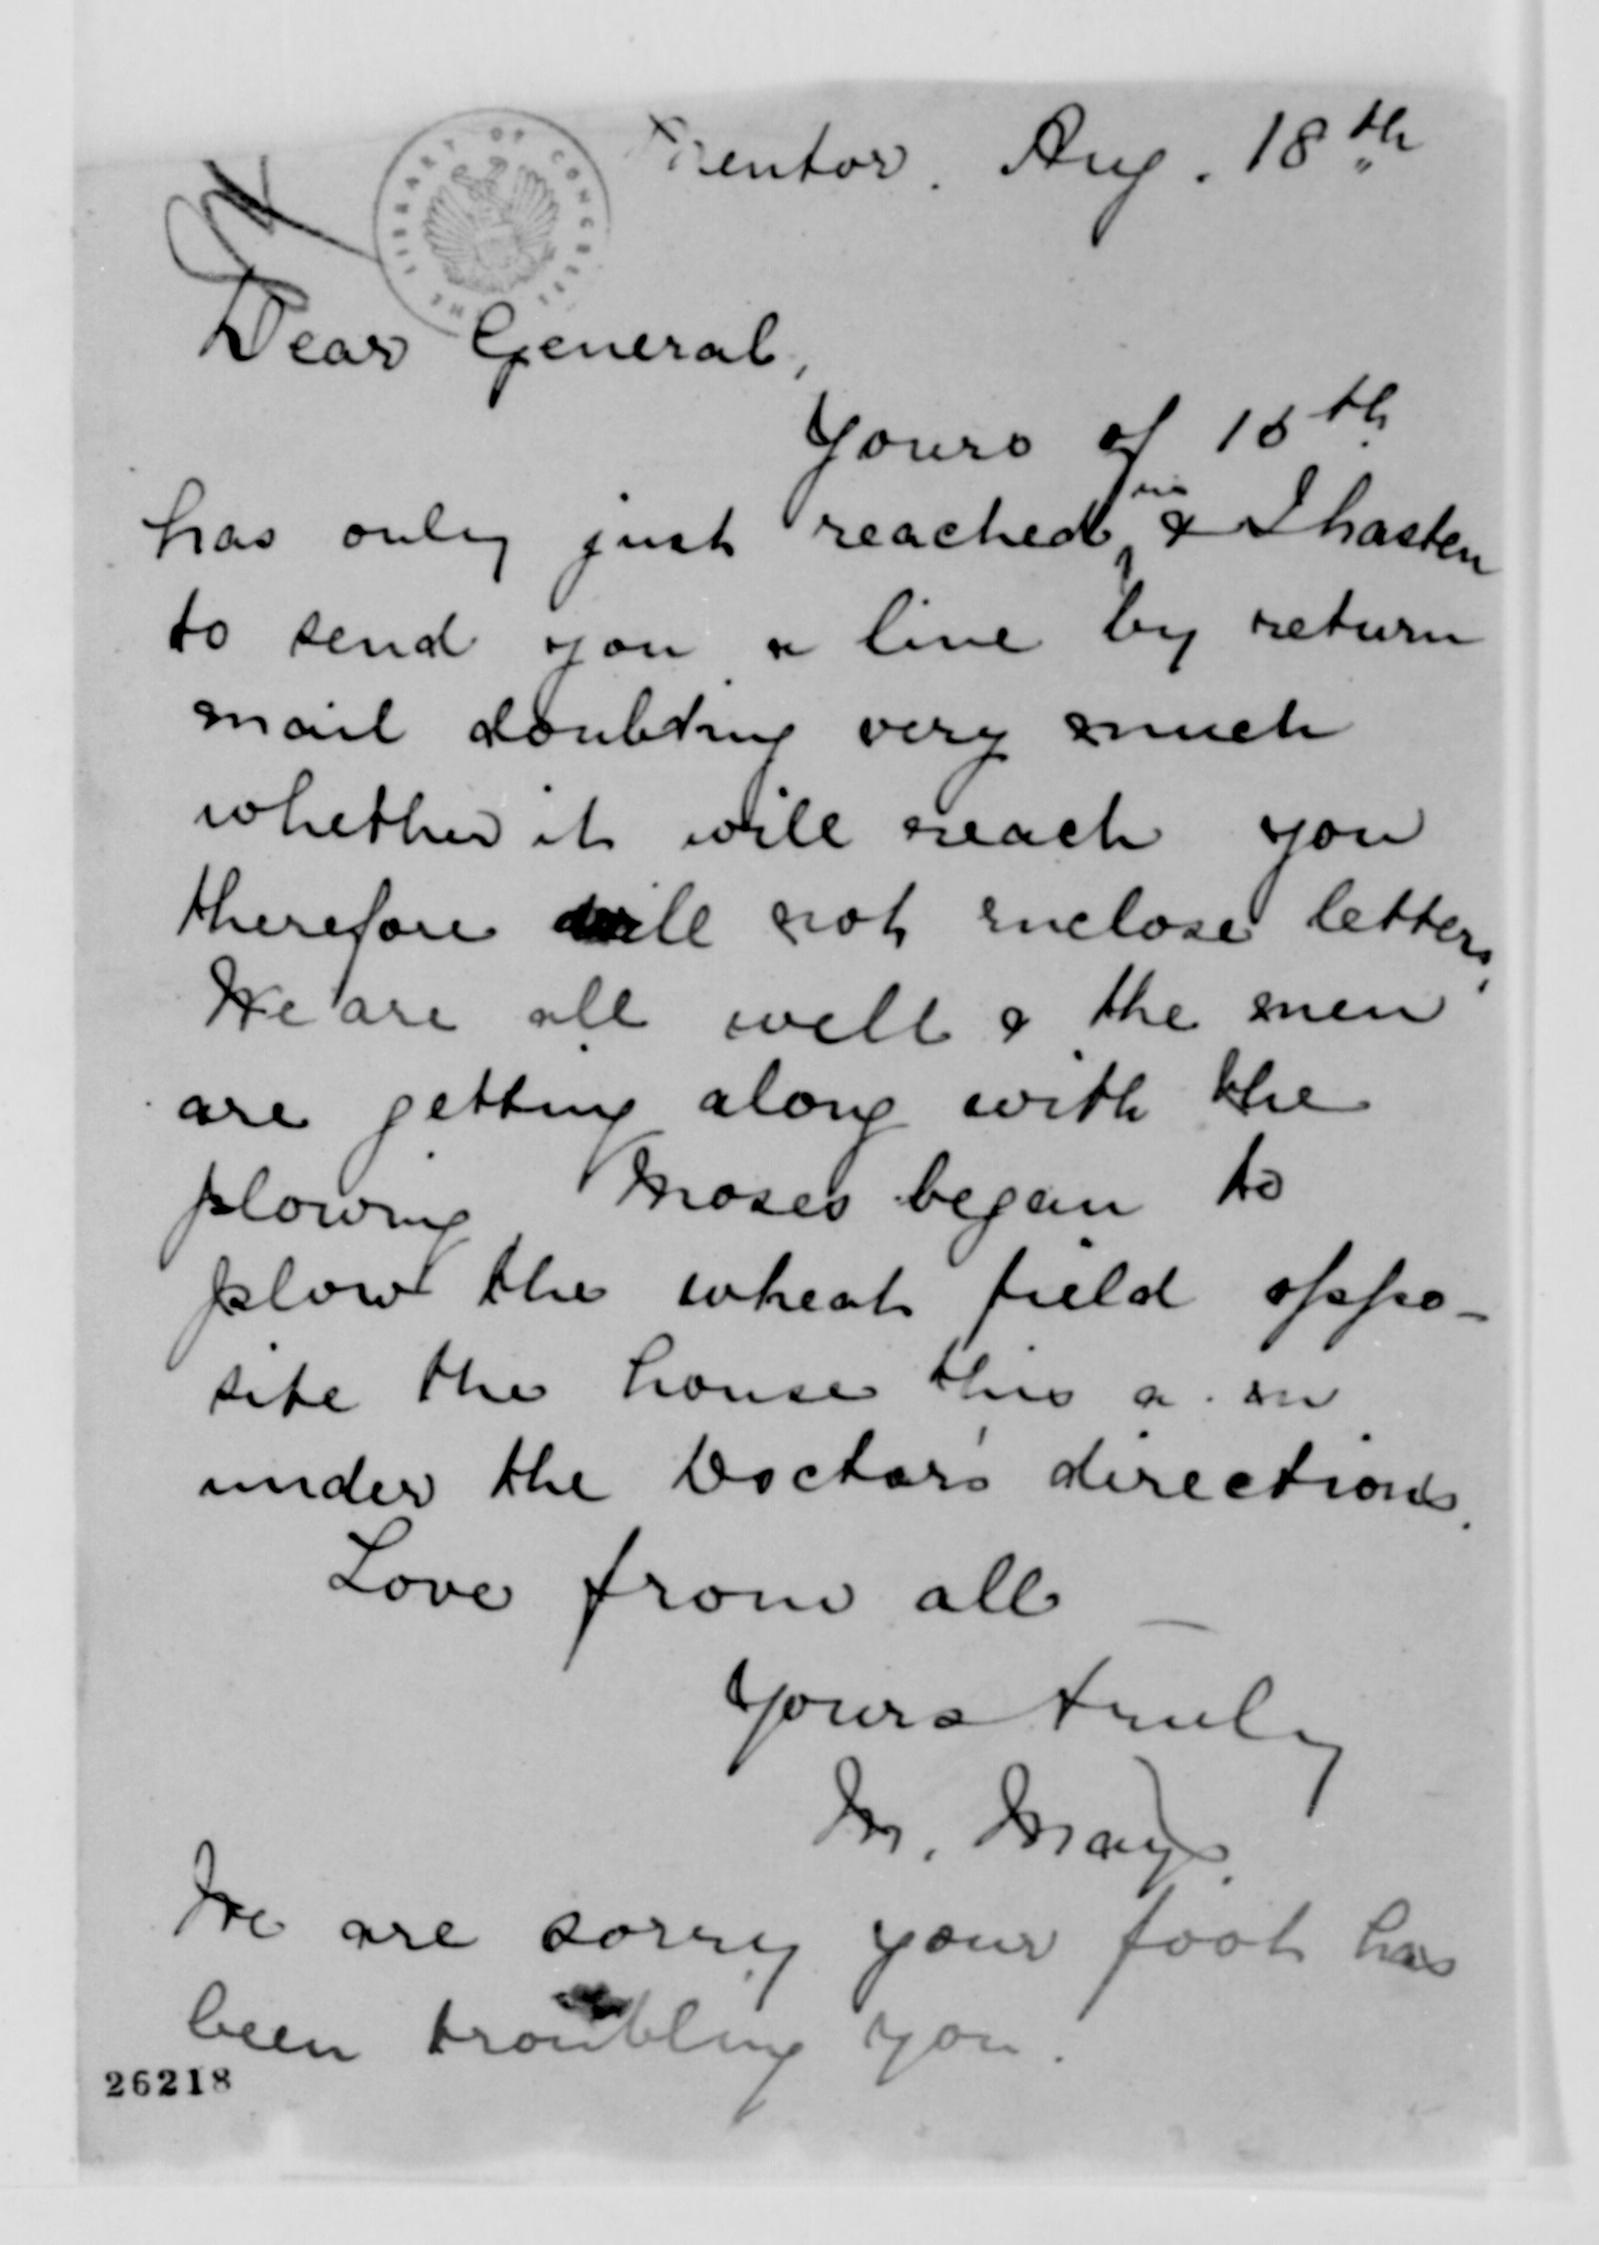 Mentor. Aug. 18th
THE LIBRARY OF CONGRESS
Dear General,
Yours of 16th
has only just reached us & I hasten
to send you a line by return
mail doubting very much
whether it will reach you
therefore will not enclose letters.
We are all well & the men
are getting along with the
plowing Moses began to
plow the wheat field oppo-
site the house this a.m
under the Doctor's directions.
Love from all —
Yours truly
M. Mays.
We are sorry your foot has
been troubling you.
26218